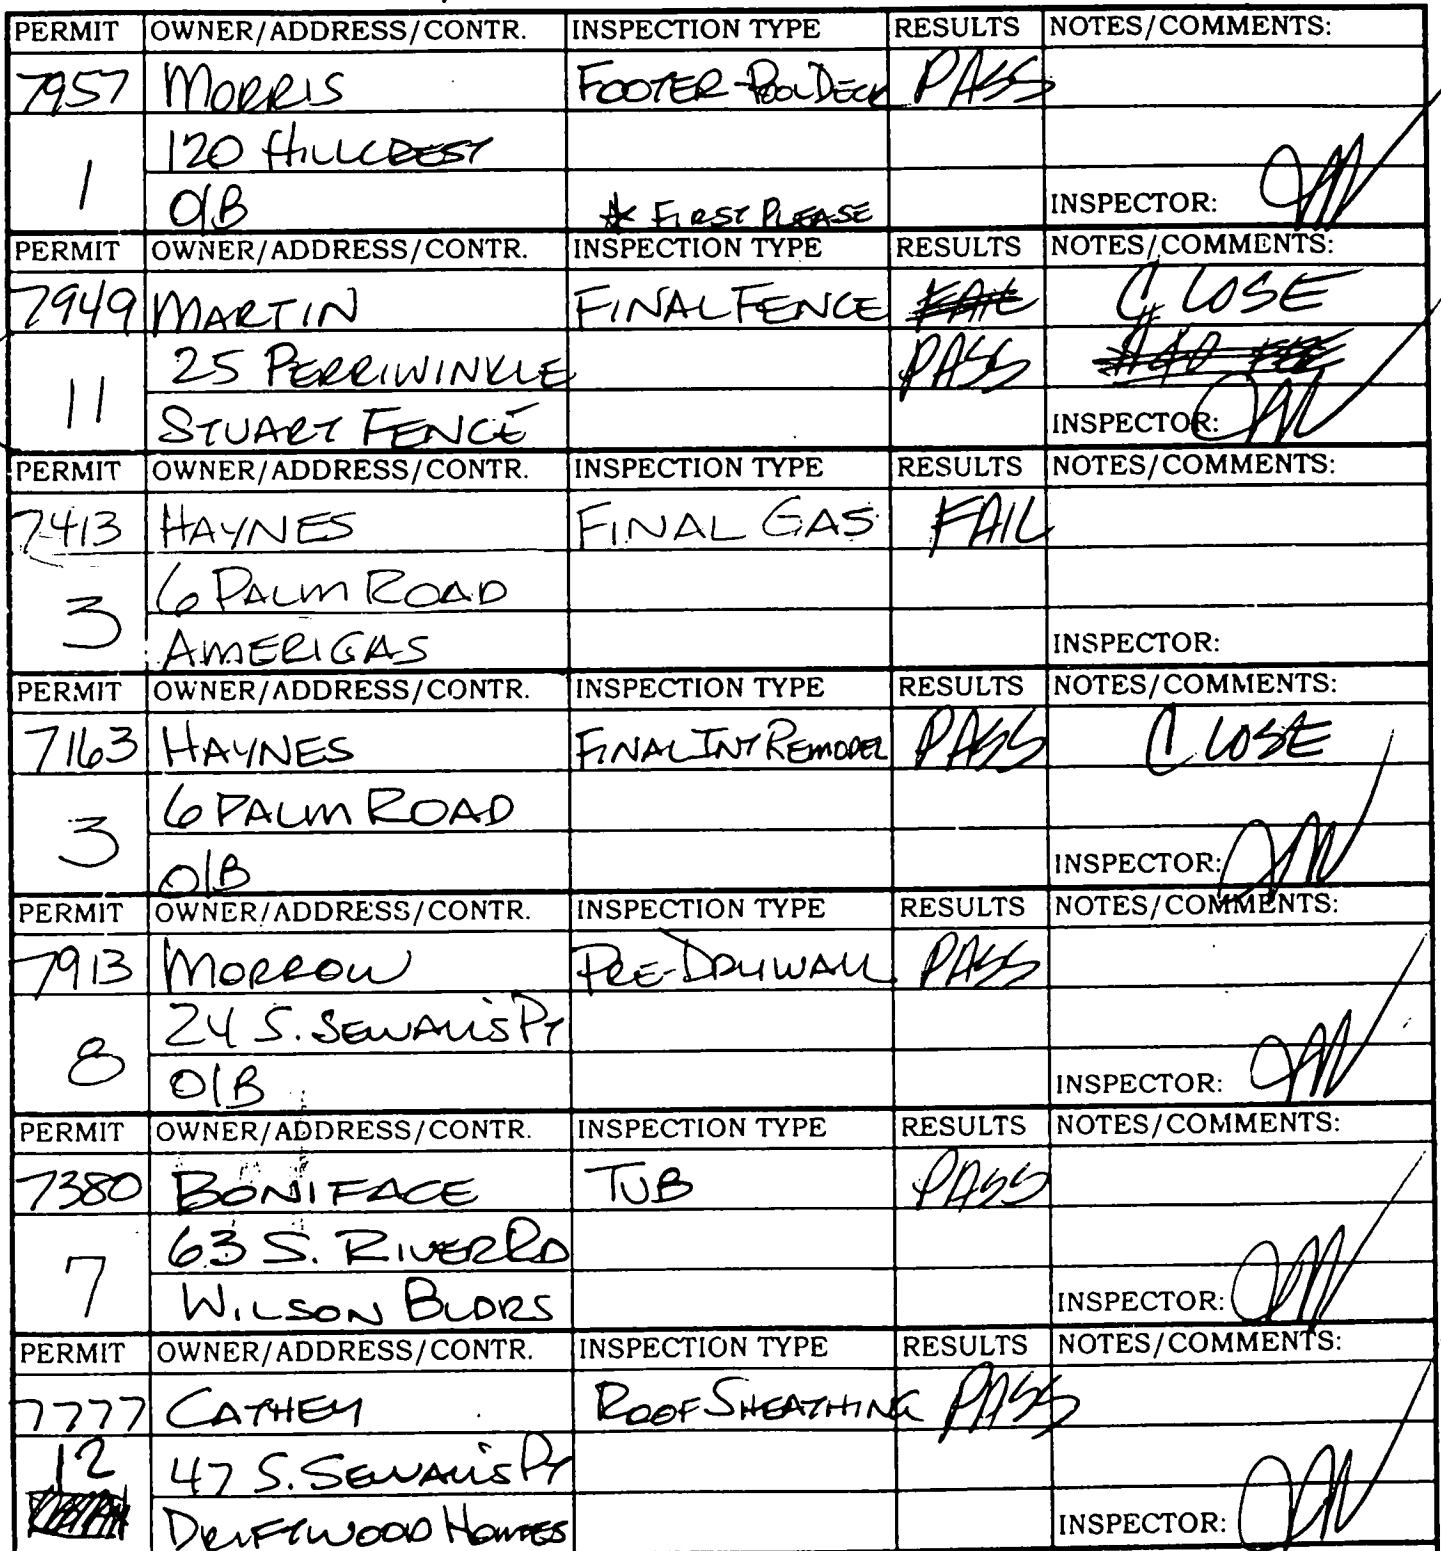 PERMIT OWNER/ADDRESS/CONTR. INSPECTION TYPE RESULTS NOTES/COMMENTS:
7957 MORRIS FOOTER-POOL DECK PASS
1 120 HILLCREST
O/B * FIRST PLEASE INSPECTOR:
PERMIT OWNER/ADDRESS/CONTR. INSPECTION TYPE RESULTS NOTES/COMMENTS:
7949 MARTIN FINAL FENCE FAIL CLOSE
11 25 PERRIWINKLE PASS
STUART FENCE INSPECTOR:
PERMIT OWNER/ADDRESS/CONTR. INSPECTION TYPE RESULTS NOTES/COMMENTS:
7413 HAYNES FINAL GAS FAIL
3 6 PALM ROAD
AMERIGAS INSPECTOR:
PERMIT OWNER/ADDRESS/CONTR. INSPECTION TYPE RESULTS NOTES/COMMENTS:
7163 HAYNES FINAL INT REMODEL PASS CLOSE
3 6 PALM ROAD
O/B INSPECTOR:
PERMIT OWNER/ADDRESS/CONTR. INSPECTION TYPE RESULTS NOTES/COMMENTS:
7913 MORROW PRE-DRYWALL PASS
8 24 S. SEWALL'S PT
O/B INSPECTOR:
PERMIT OWNER/ADDRESS/CONTR. INSPECTION TYPE RESULTS NOTES/COMMENTS:
7380 BONIFACE TUB PASS
7 63 S. RIVER RD
WILSON BLDRS INSPECTOR:
PERMIT OWNER/ADDRESS/CONTR. INSPECTION TYPE RESULTS NOTES/COMMENTS:
7777 CATHEY ROOF SHEATHING PASS
12 47 S. SEWALL'S PT
DRIFTWOOD HOMES INSPECTOR: